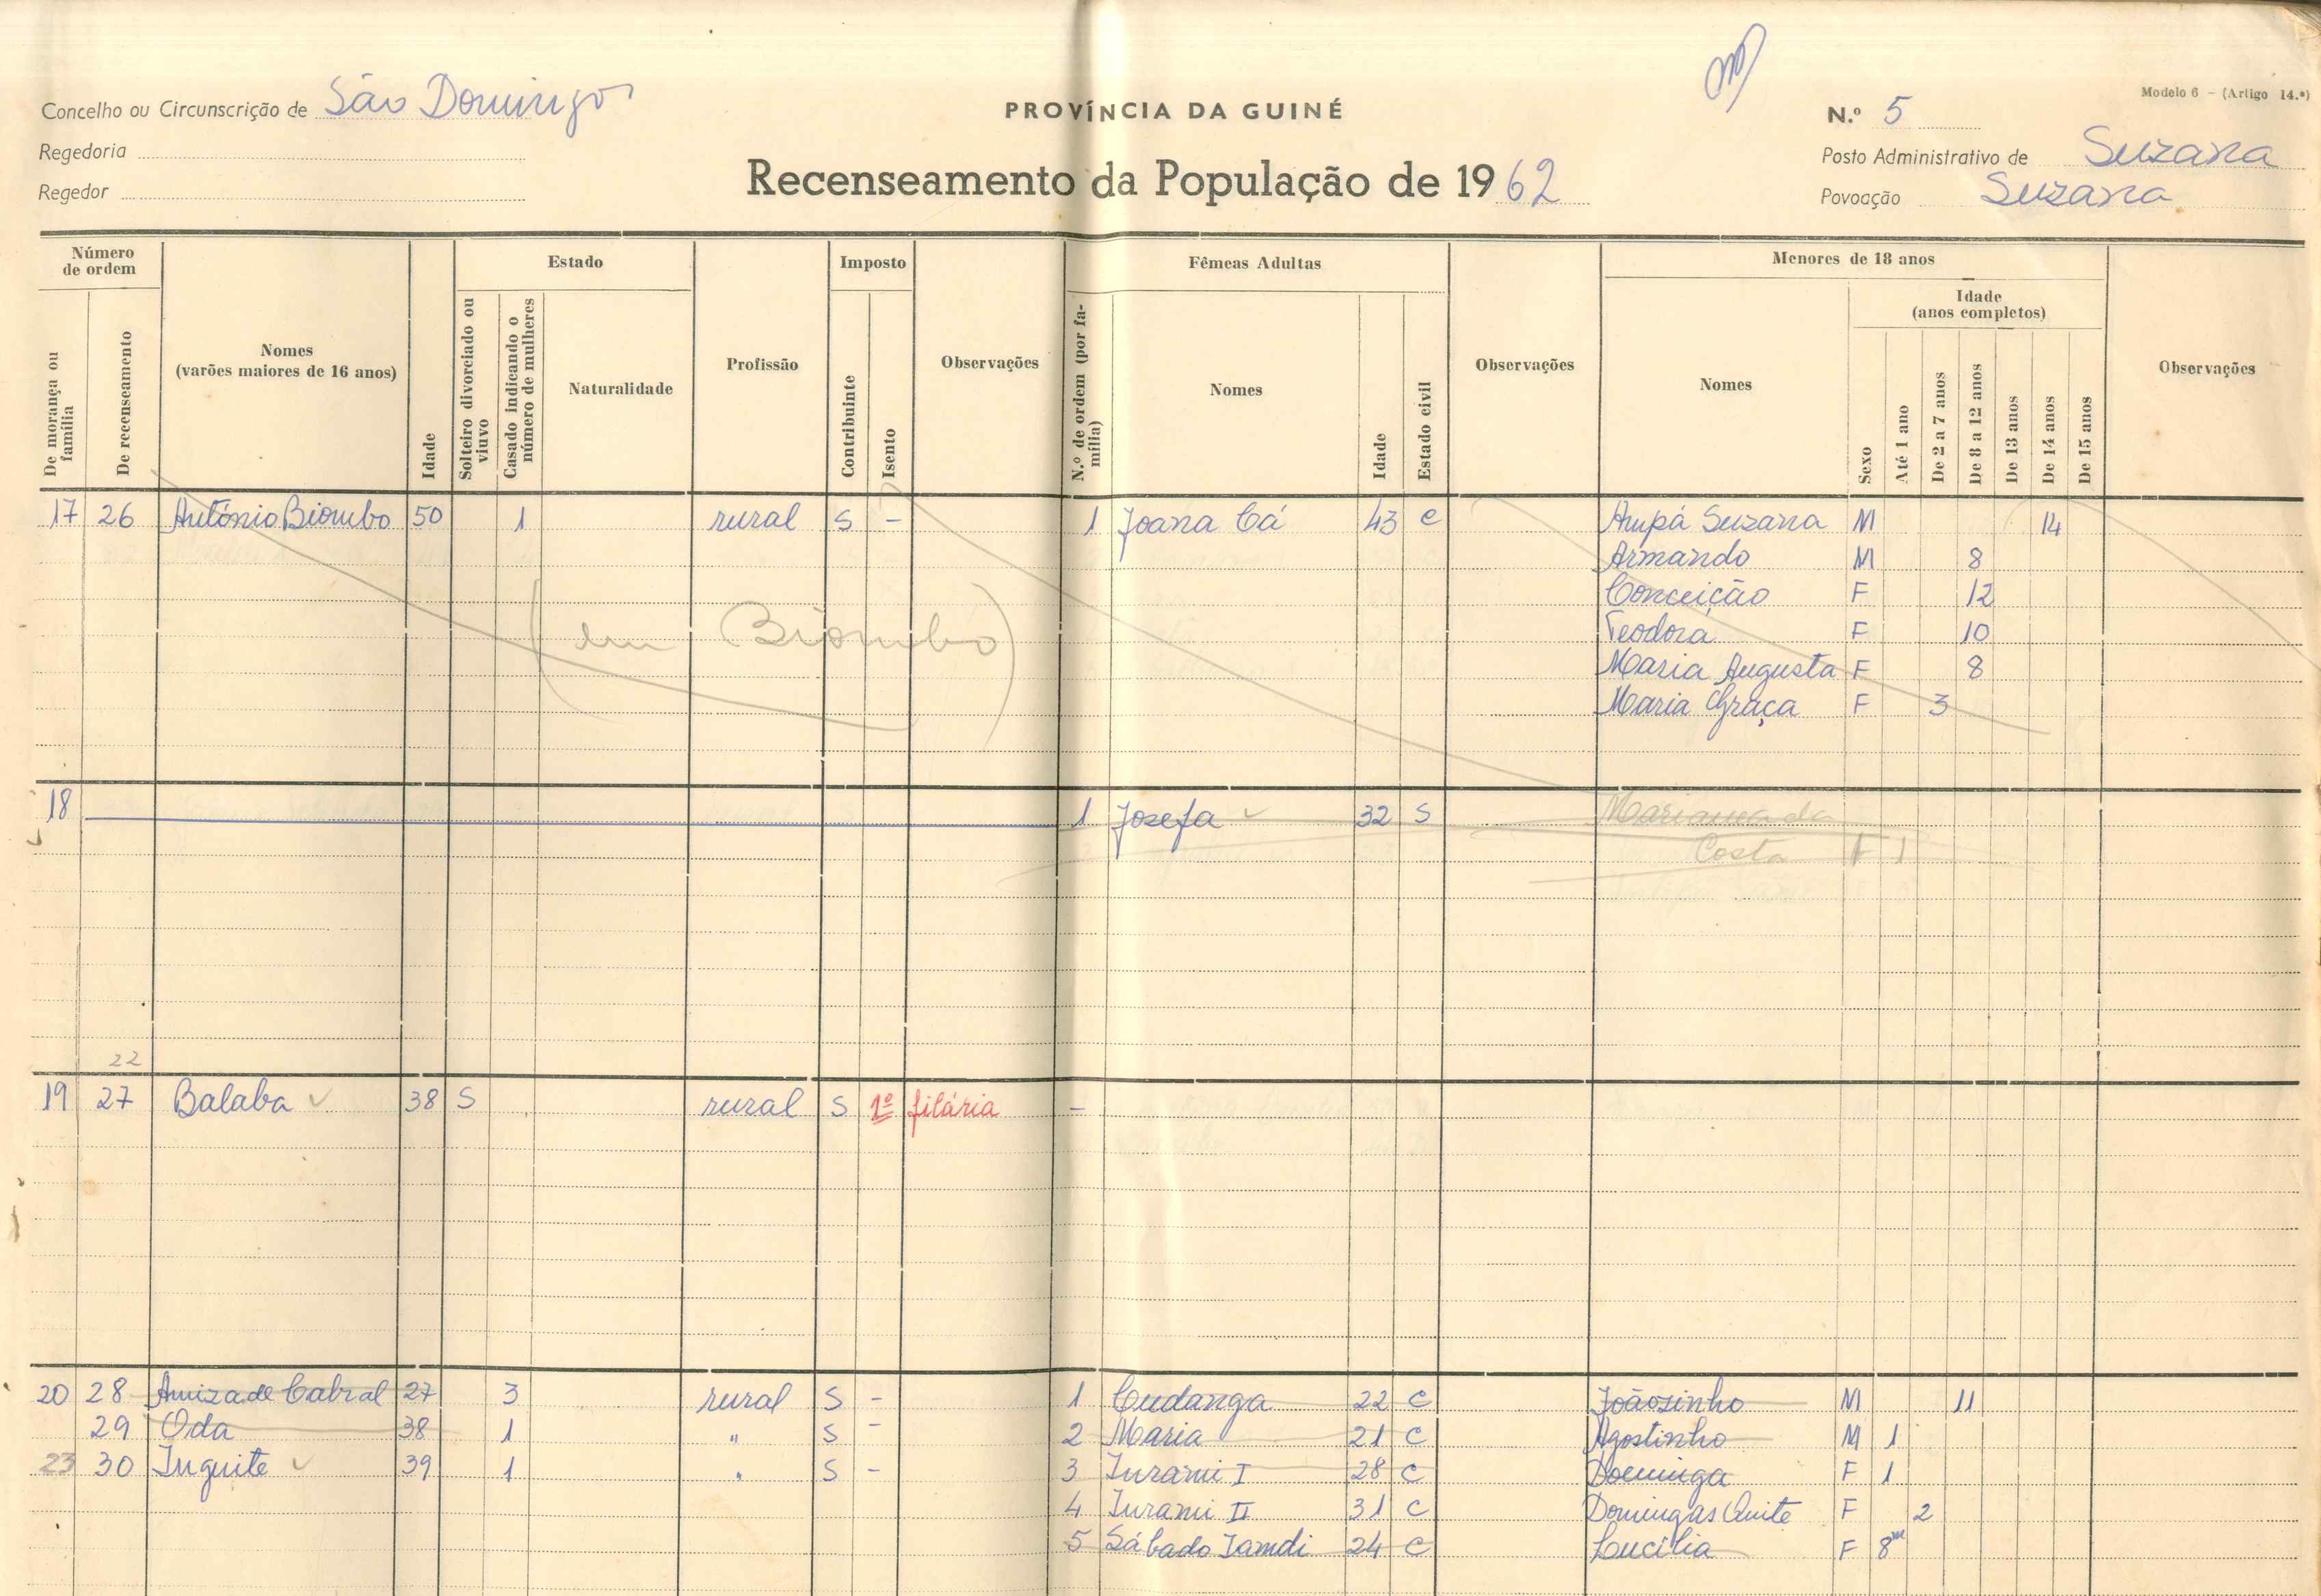 Modelo 6 - (Artigo 14.º)
Concelho ou Circunscrição de São Domingos
PROVÍNCIA DA GUINÉ
N.º 5
Regedoria
Posto Administrativo de Suzana
Regedor
Recenseamento da População de 1962
Povoação Suzana
Número de ordem
De morança ou família
De recenseamento
Nomes
(varões maiores de 16 anos)
Idade
Estado
Solteiro divorciado ou viuvo
Casado indicando o número de mulheres
Naturalidade
Profissão
Imposto
Contribuinte
Isento
Observações
Fêmeas Adultas
N.º de ordem (por família)
Nomes
Idade
Estado civil
Observações
Menores de 18 anos
Nomes
Sexo
Idade
(anos completos)
Até 1 ano
De 2 a 7 anos
De 8 a 12 anos
De 13 anos
De 14 anos
De 15 anos
Observações
17 26 António Biombo 50 1 rural S - 1 Joana Cá 43 c Ampá Suzana M 14
Armando M 8
Conceição F 12
Teodora F 10
(em Biombo)
Maria Augusta F 8
Maria Graça F 3
18 1 Josefa 32 S Mariama da
Costa F 1
22
19 27 Balaba 38 S rural S 1º filária -
20 28 Amizade Cabral 27 3 rural S - 1 Cudanga 22 c Joãosinho M 11
29 Oda 38 1 " S - 2 Maria 21 c Agostinho M 1
23 30 Inguite 39 1 " S - 3 Jurami I 28 c Dominga F 1
4 Jurami II 31 c Domingas Quite F 2
5 Sábado Jamdi 24 c Lucília F 8m